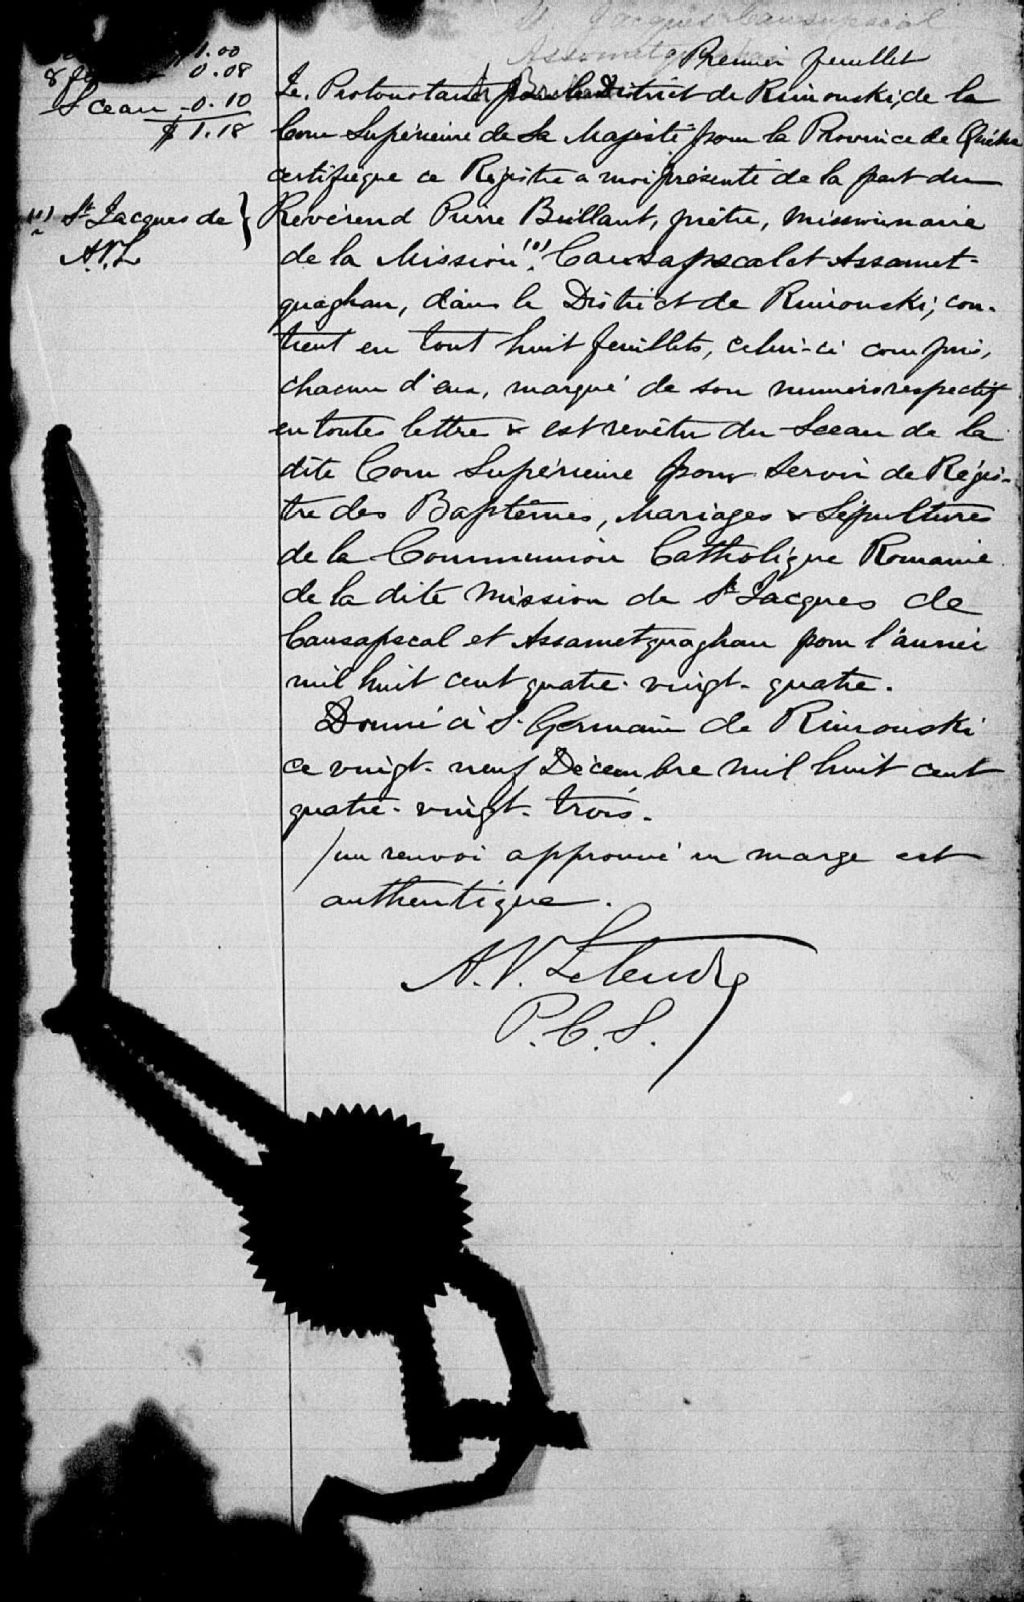 St Jacques Causapscal
Assametquaghan
Premier feuillet
$1.00
8 0.08
Sceau - 0.10
$1.18
Le Protonotaire pour le District de Rimouski, de la
Cour Supérieure de Sa Majesté pour la Province de Québec
certifie que ce Registre a moi présenté de la part du
Révérend Pierre Brillant, prêtre, missionnaire
(1) St Jacques de }
A.V.L
de la Mission (1) Causapscal et Assamet-
quaghan, dans le District de Rimouski, con-
tient en tout huit feuillets, celui-ci compris,
chacun d'eux, marqué de son numéro respectif
en toutes lettre & est revêtu du Sceau de la
dite Cour Supérieure pour servir de Régis-
tre des Baptêmes, Mariages & Sépultures
de la Communion Catholique Romaine
de la dite mission de St Jacques de
Causapscal et Assametquaghan pour l'année
mil huit cent quatre-vingt-quatre.
Donné à St Germain de Rimouski
ce vingt-neuf Décembre mil huit cent
quatre-vingt-trois.
/un renvoi approuvé en marge est
authentique.
A.V. Letendre
P.C.S.